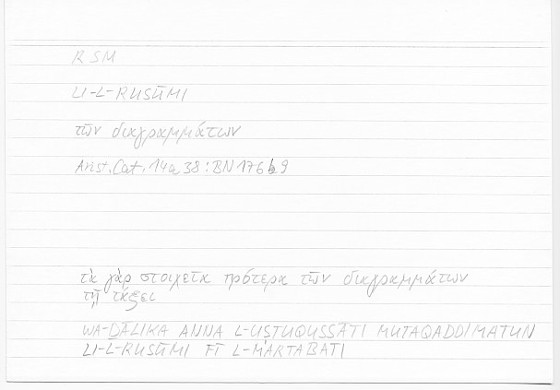 RSM
LI-L-RUSŪMI
τῶν διαγραμμάτων
Arist. Cat. 14a 38 : BN 176b9
τὰ γὰρ στοιχεῖα πρότερα τῶν διαγραμμάτων
τῇ τάξει
WA-ḎĀLIKA ANNA L-USTUQUSSĀTI MUTAQADDIMATUN
LI-L-RUSŪMI FĪ L-MARTABATI